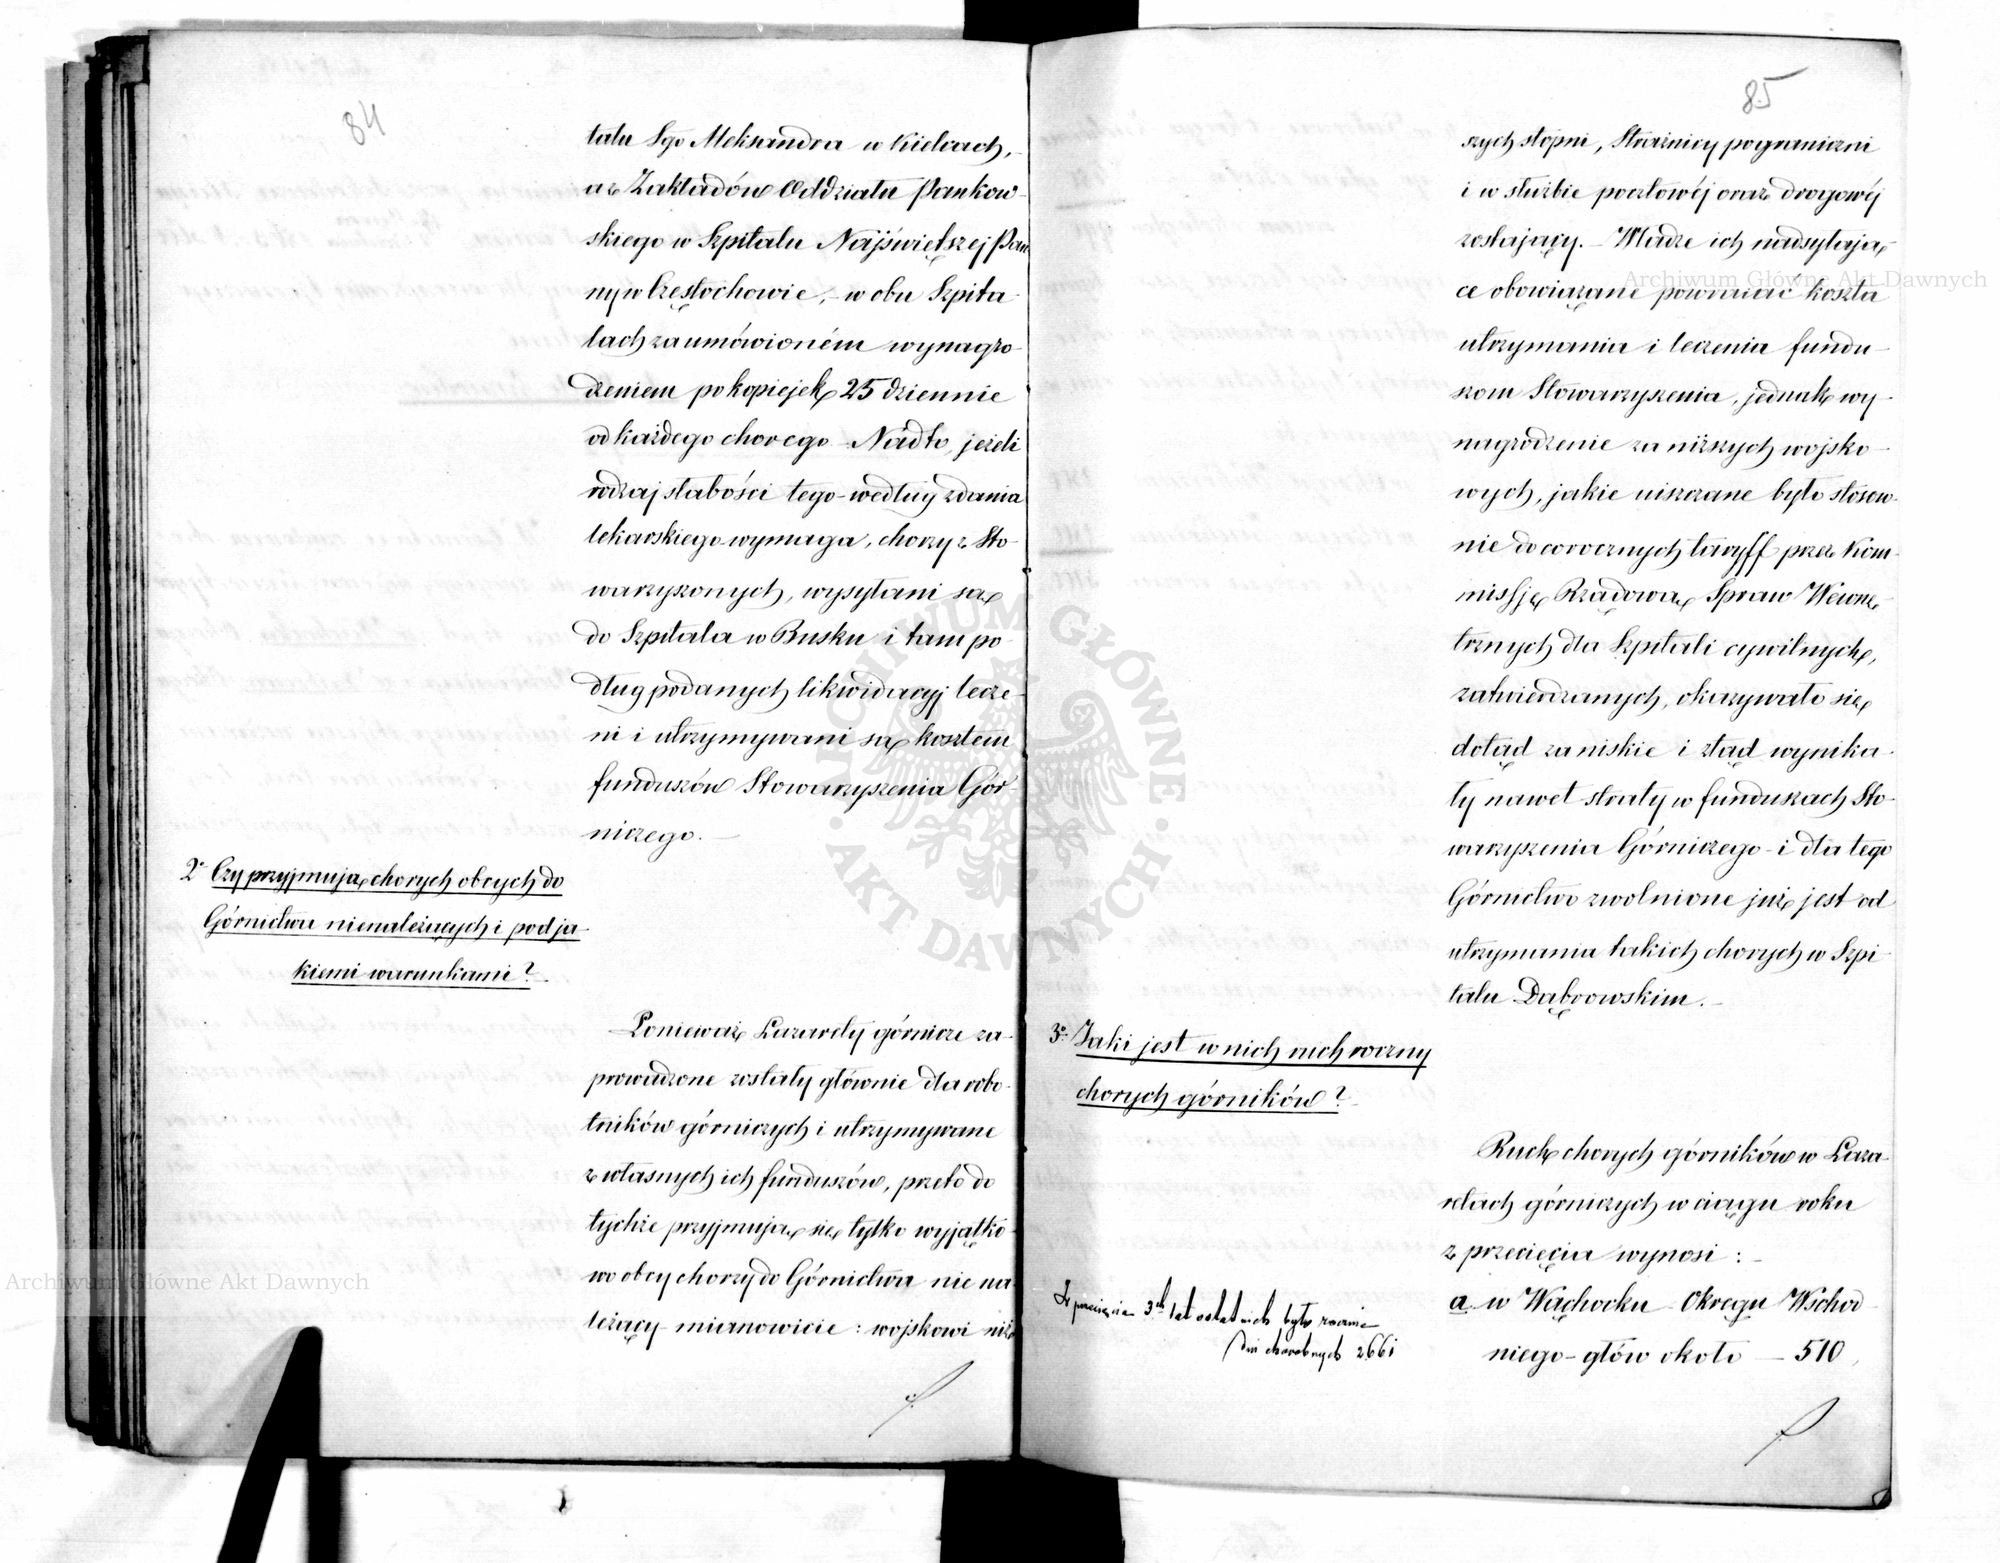 84
talu Sgo Aleksandra w Kielcach,
a z Zakładów Oddziału Pankow-
skiego w Szpitalu Najświętszej Pan
ny w Częstochowie, - w obu Szpita-
lach za umówioném wynagro-
dzeniem po kopiejek 25 dziennie
od każdego chorego - Nadto, jeżeli
rodzaj słabości tego według zdania
lekarskiego wymaga, chorzy z Sto-
warzyszonych, wysyłani są
do Szpitala w Busku i tam po-
dług podanych likwidacyj lecze-
ni i utrzymywani są kosztem
funduszów Stowarzyszenia Gór-
niczego. -
2° Czy przyjmują chorych obcych do
Górnictwa nienależących i pod ja-
kiemi warunkami?
Ponieważ Lazarety górnicze za-
prowadzone zostały głównie dla robo-
tników górniczych i utrzymywane
z własnych ich funduszów, przeto do
tychże przyjmują się tylko wyjątko-
wo obcy chorzy do Górnictwa nie na-
leżący - mianowicie: wojskowi niż-
85
szych stopni, Strażnicy pograniczni
i w służbie pocztowéj oraz drogowéj
zostający. - Władze ich nadsyłają-
ce obowiązane powracać koszta
utrzymania i leczenia fundu-
szom Stowarzyszenia, jednak wy-
nagrodzenie za niższych wojsko-
wych, jakie uiszczane było stosow-
nie do corocznych taryff przez Kom-
missję Rządową Spraw Wewnę-
trznych dla Szpitali cywilnych,
zatwierdzanych, okazywało się
dotąd za niskie i ztąd wynika-
ły nawet straty w funduszach Sto-
warzyszenia Górniczego - i dla tego
Górnictwo zwolnione już jest od
utrzymania takich chorych w Szpi-
talu Dąbrowskim. -
3° Jaki jest w nich ruch roczny
chorych górników?
Ruch chorych górników w Laza-
retach górniczych w ciągu roku
z przecięcia wynosi: -
a. w Wąchocku - Okręgu Wschod-
niego - głów około - 510,
Z przecięcia 3ch lat ostatnich było rocznie
dni chorobnych 2661
Archiwum Główne Akt Dawnych
Archiwum Główne Akt Dawnych
ARCHIWUM GŁÓWNE · AKT DAWNYCH ·